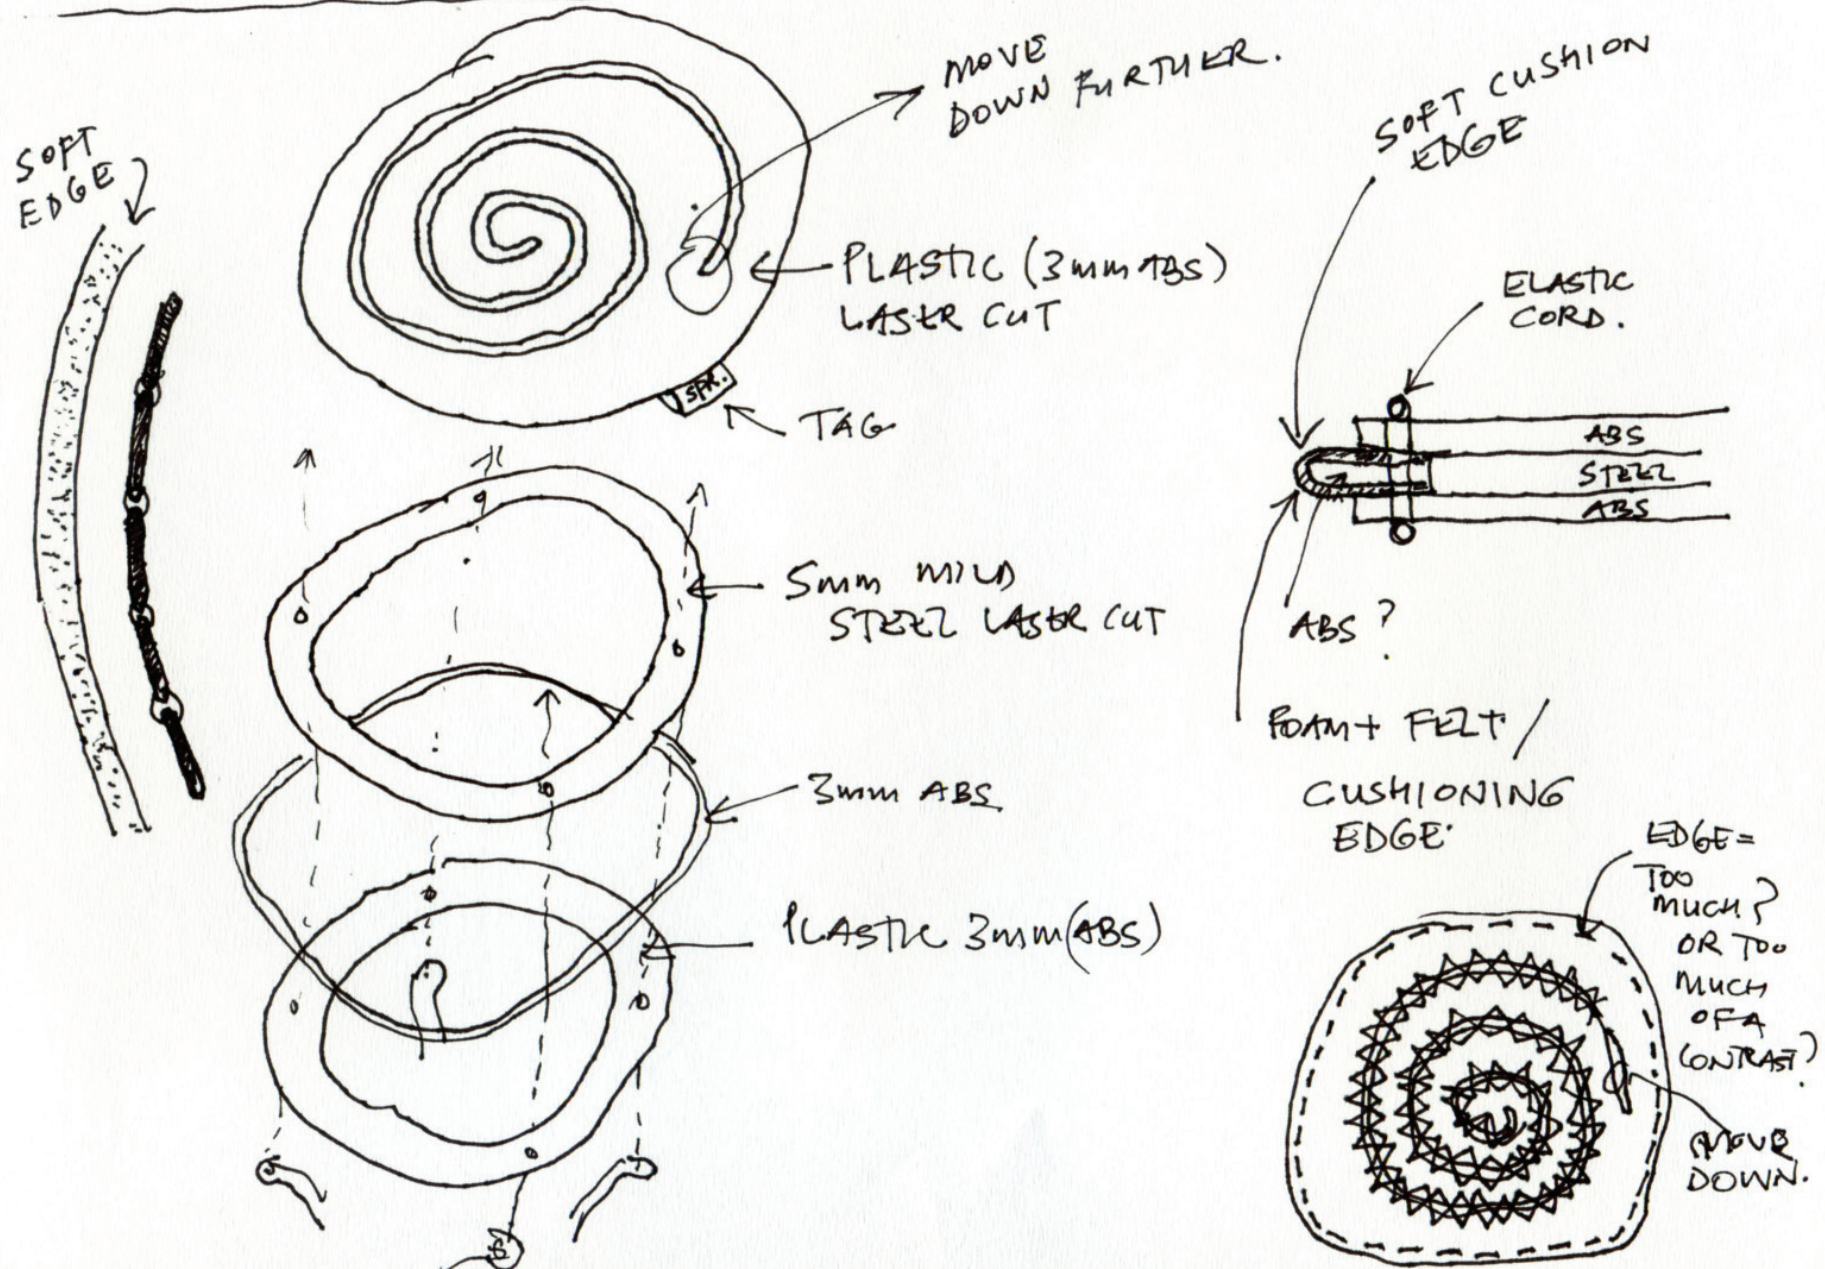 SOFT
EDGE
MOVE
DOWN FURTHER.
PLASTIC (3mm ABS)
LASER CUT
SPR.
TAG
5mm MILD
STEEL LASER CUT
3mm ABS
PLASTIC 3mm (ABS)
SOFT CUSHION
EDGE
ELASTIC
CORD.
ABS
STEEL
ABS
ABS?
FOAM + FELT /
CUSHIONING
EDGE.
EDGE =
TOO
MUCH?
OR TOO
MUCH
OF A
CONTRAST?
MOVE
DOWN.